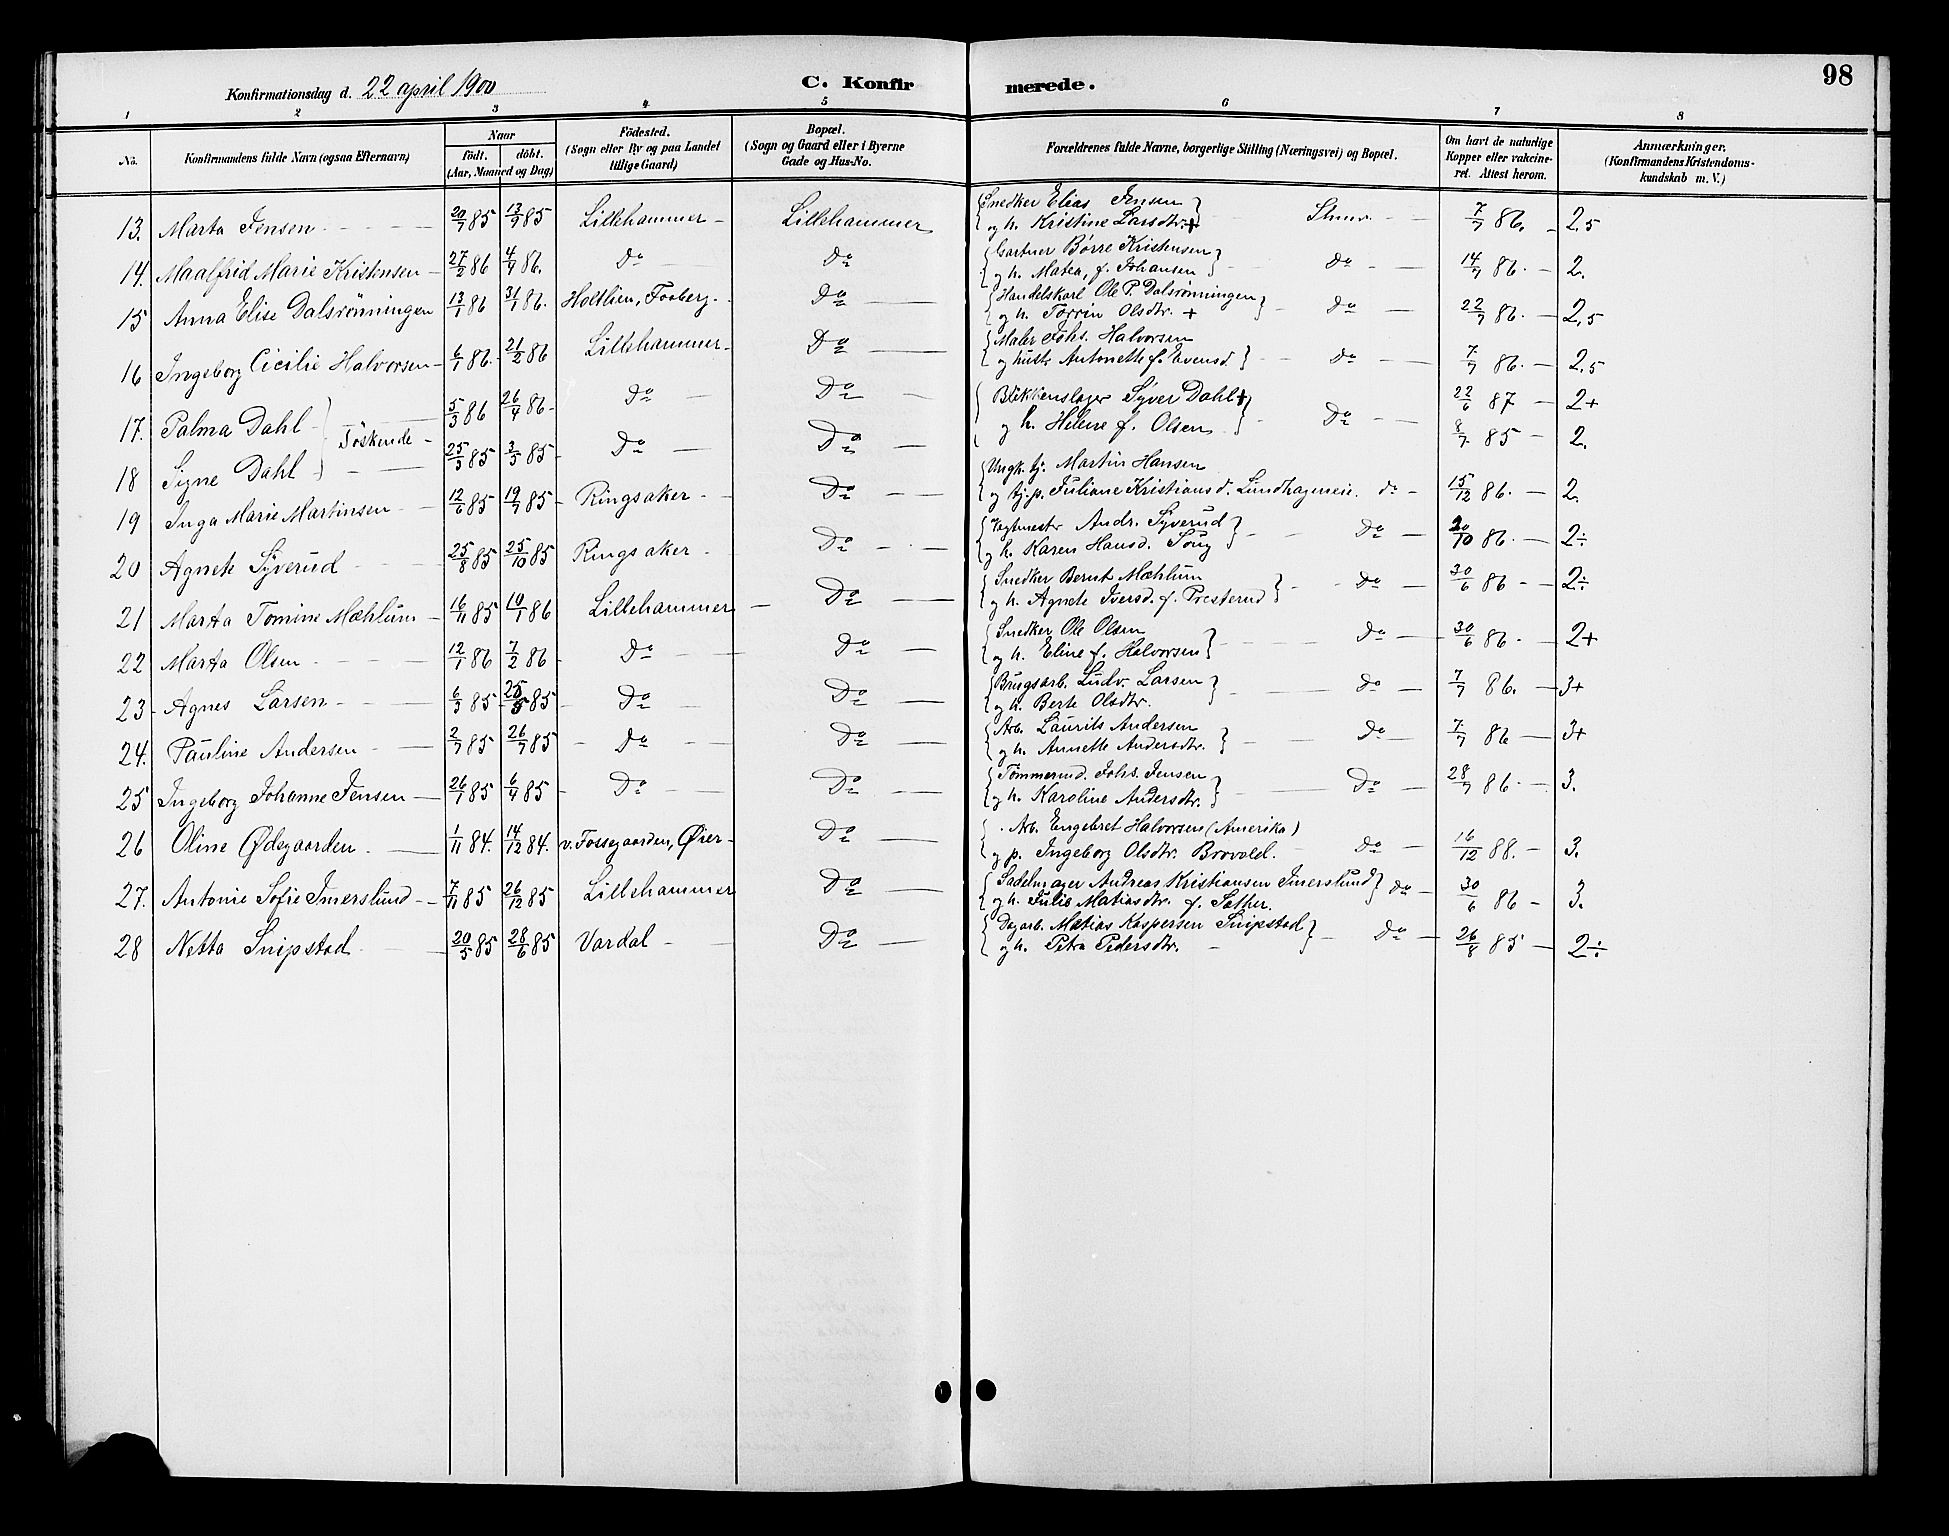 98
Konfirmationsdag d. 22 april 1900
C. Konfirmerede.
1 2 3 4 5 6 7 8
No. Konfirmandens fulde Navn (ogsaa Efternavn) Naar födt. döbt. (Aar, Maaned og Dag) Födested. (Sogn eller By og paa Landet tillige Gaard) Bopæl. (Sogn og Gaard eller i Byerne Gade og Hus-No. Forældrenes fulde Navne, borgerlige Stilling (Næringsvei) og Bopæl. Om havt de naturlige Kopper eller vakcineret. Attest herom. Anmærkninger. (Konfirmandens Kristendomskundskab m. V.)
13. Marta Jensen 20/7 85 13/9 85 Lillehammer Lillehammer Snedker Elias Jensen og h. Kristine Larsdtr. + 7/7 86. 2,5
14. Maalfrid Marie Kristensen 27/2 86 4/4 86. Do Do Gartner Børre Kristensen og h. Matea, f. Johansen Do 14/7 86. 2.
15 Anna Elise Dalsrönningen 13/1 86 31/1 86. Holtlien, Faaberg. Do Handelskarl Ole P. Dalsrönningen og h. Torrin Olsdtr. + Do 22/7 86. 2,5
16 Ingeborg Cicilie Halvorsen 6/1 86. 21/2 86 Lillehammer Do Maler Johs. Halvorsen og hustr. Antonette f. Evensd. Do 7/7 86. 2,5
17. Palma Dahl Söskende 5/3 86 26/4 86. Do Do Blikkenslager Syver Dahl + og h. Helene f. Olsen Do 22/6 87 2+
18 Signe Dahl 25/3 85 3/5 85 Do Do 8/7 85 2.
19 Inga Marie Martinsen 12/6 85 19/7 85 Ringsaker Do Ungk. tj. Martin Hansen og tj. p. Juliane Kristiansd. Lundhageneie. do 15/12 86. 2.
20 Agnete Syverud 25/8 85 25/10 85 Ringsaker Do Vagtmester Andr. Syverud og h. Karen Hansd. Do 20/10 86. 2÷
21 Marta Tomine Mæhlum 16/11 85 10/1 86 Lillehammer Do Snedker Bernt Mæhlum og h. Agnete Iversd. f. Presterud Do 30/6 86 2÷
22 Marta Olsen 12/1 86 7/2 86 Do Do Snedker Ole Olsen og h. Eline f. Halvorsen Do 30/6 86. 2+
23 Agnes Larsen 6/3 85 25/5 85 Do Do Brugsarb. Ludv. Larsen og h. Berte Olsdtr. Do 7/7 86. 3+
24. Pauline Andersen 2/7 85 26/7 85 Do Do Arb. Laurits Andersen og h. Annette Andersdtr. Do 7/7 86 3+
25 Ingeborg Johanne Jensen 26/1 85 6/4 85 Do Do Tömmermd. Johs. Jensen og h. Karoline Andersdtr. Do 28/7 86. 3.
26 Oline Ødegaarden 1/11 84. 14/12 84. v. Fossegaarden, Øier Do Arb. Engebret Halvorsen (Amerika) og p. Ingeborg Olsdtr. Brovold. Do 16/12 88. 3.
27. Antonie Sofie Imerslund 7/11 85 26/12 85 Lillehammer Do Sadelmager Andreas Kristiansen Imerslund og h. Julie Matiasdtr. f. Sather. Do 30/6 86 3.
28 Netta Snipstad 20/5 85 28/6 85 Vardal Do Dagarb. Matias Kaspersen Snipstad og h. Petra Pedersdtr. Do 26/8 85 2÷